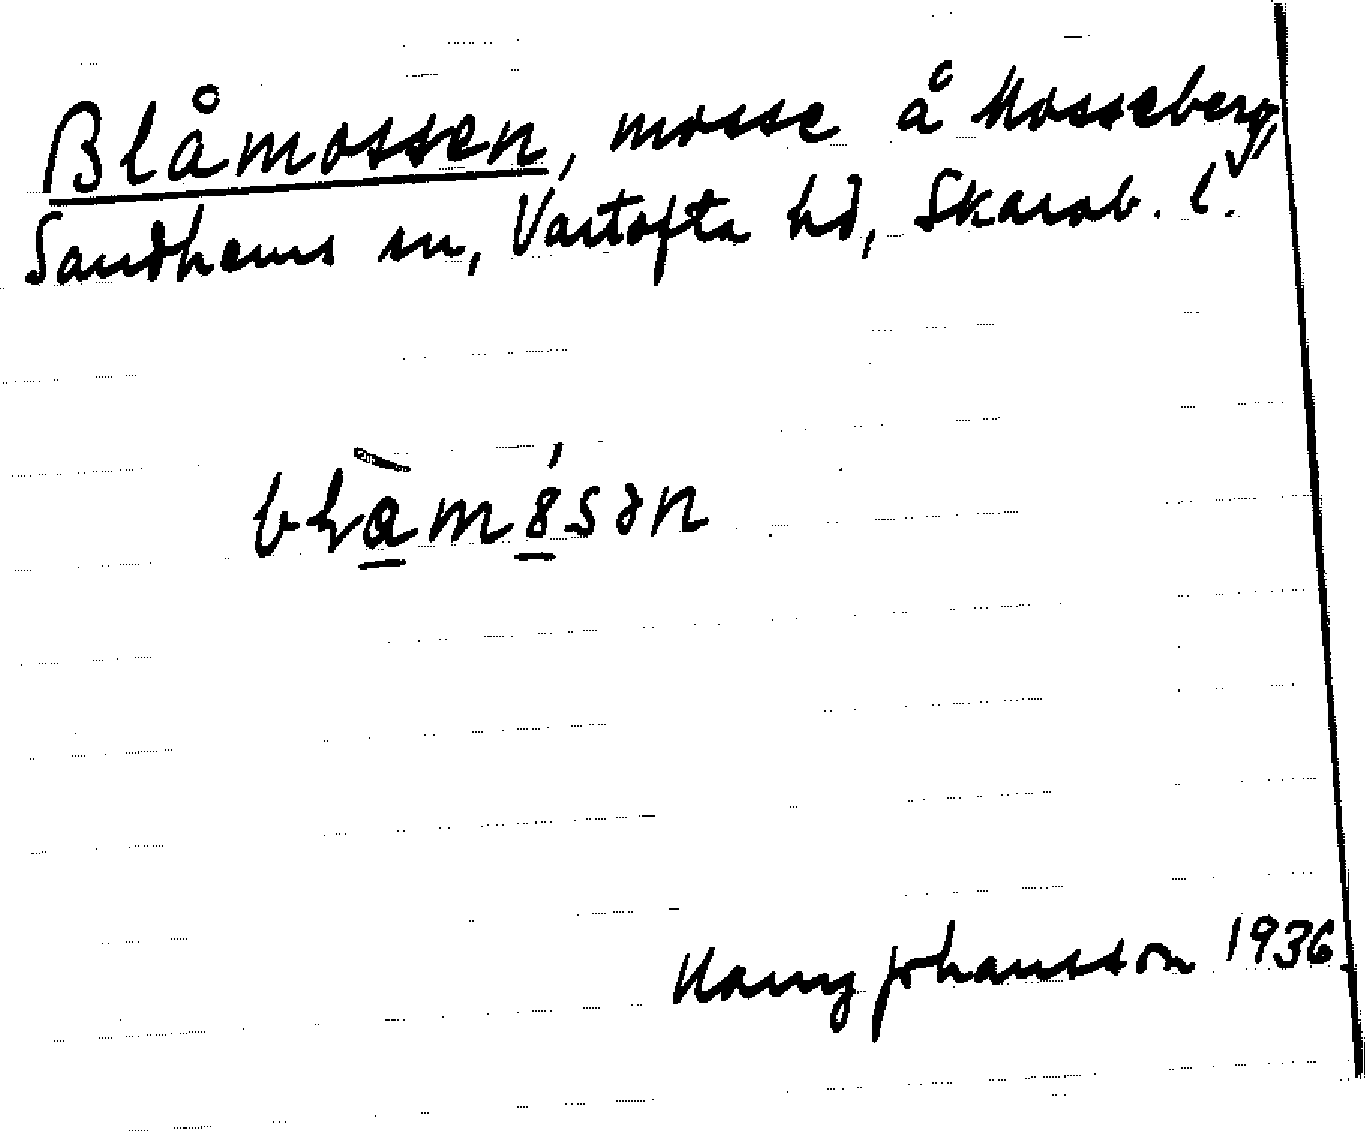 Blåmossen, mosse å Mosseberg,
Sandhems sn, Vartofta hd, Skarab. l.
Harry Johansson 1936.